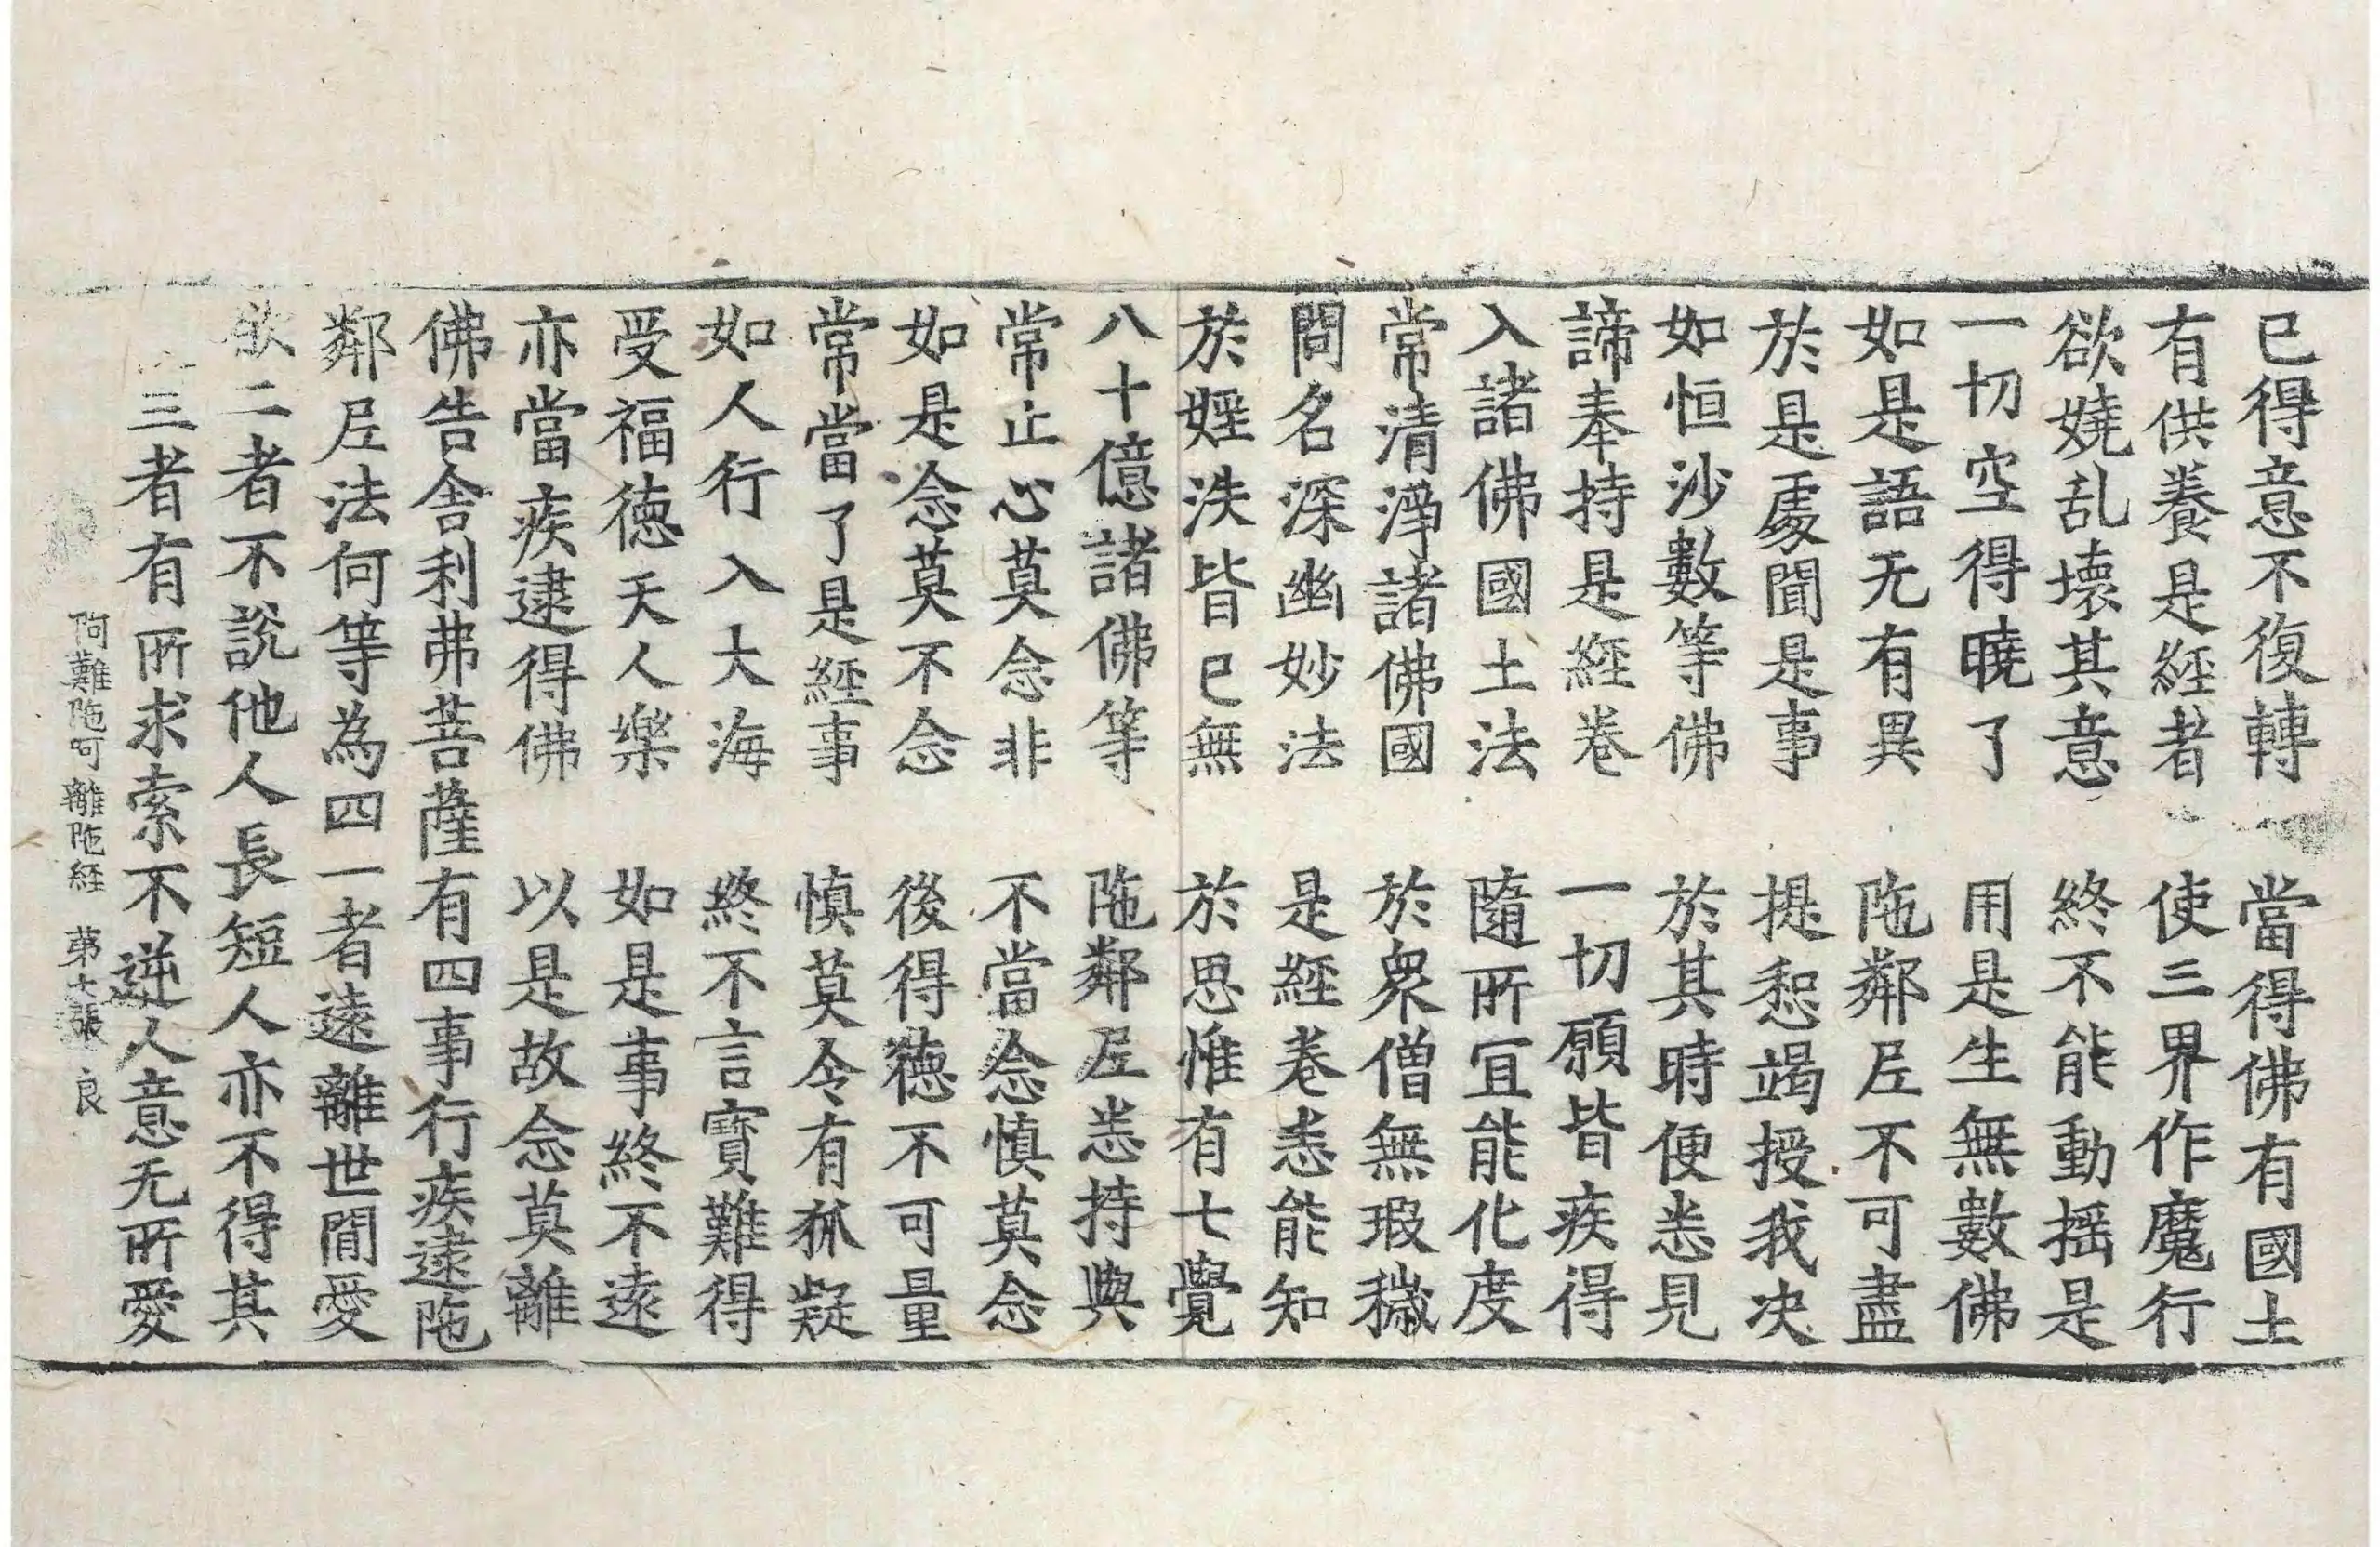 已得意不復轉　當得佛有國土
有供養是經者　使三界作魔行
欲嬈乱壞其意　終不能動揺是
一切空得曉了　用是生無數佛
如是語无有異　陁鄰𡰱不可盡
於是處聞是事　提惒竭授我决
如恒沙數等佛　於其時便悉見
諦奉持是經卷　一切願皆疾得
入諸佛國土法　隨所冝能化度
常清淨諸佛國　於衆僧無瑕穢
問名深幽妙法　是經卷悉能知
於婬泆皆已無　於思惟有七覺
八十億諸佛等　陁鄰𡰱悉持典
常止心莫念非　不當念慎莫念
如是念莫不念　後得德不可量
常當了是經事　慎莫令有狐疑
如人行入大海　終不言寶難得
受福德天人樂　如是事終不遠
亦當疾逮得佛　以是故念莫離
佛告舍利弗菩薩有四事行疾逮陁
鄰𡰱法何等為四一者遠離世間愛
欲二者不說他人長短人亦不得其
三者有所求索不逆人意无所愛
阿難陁呵離陁經　第七張　良